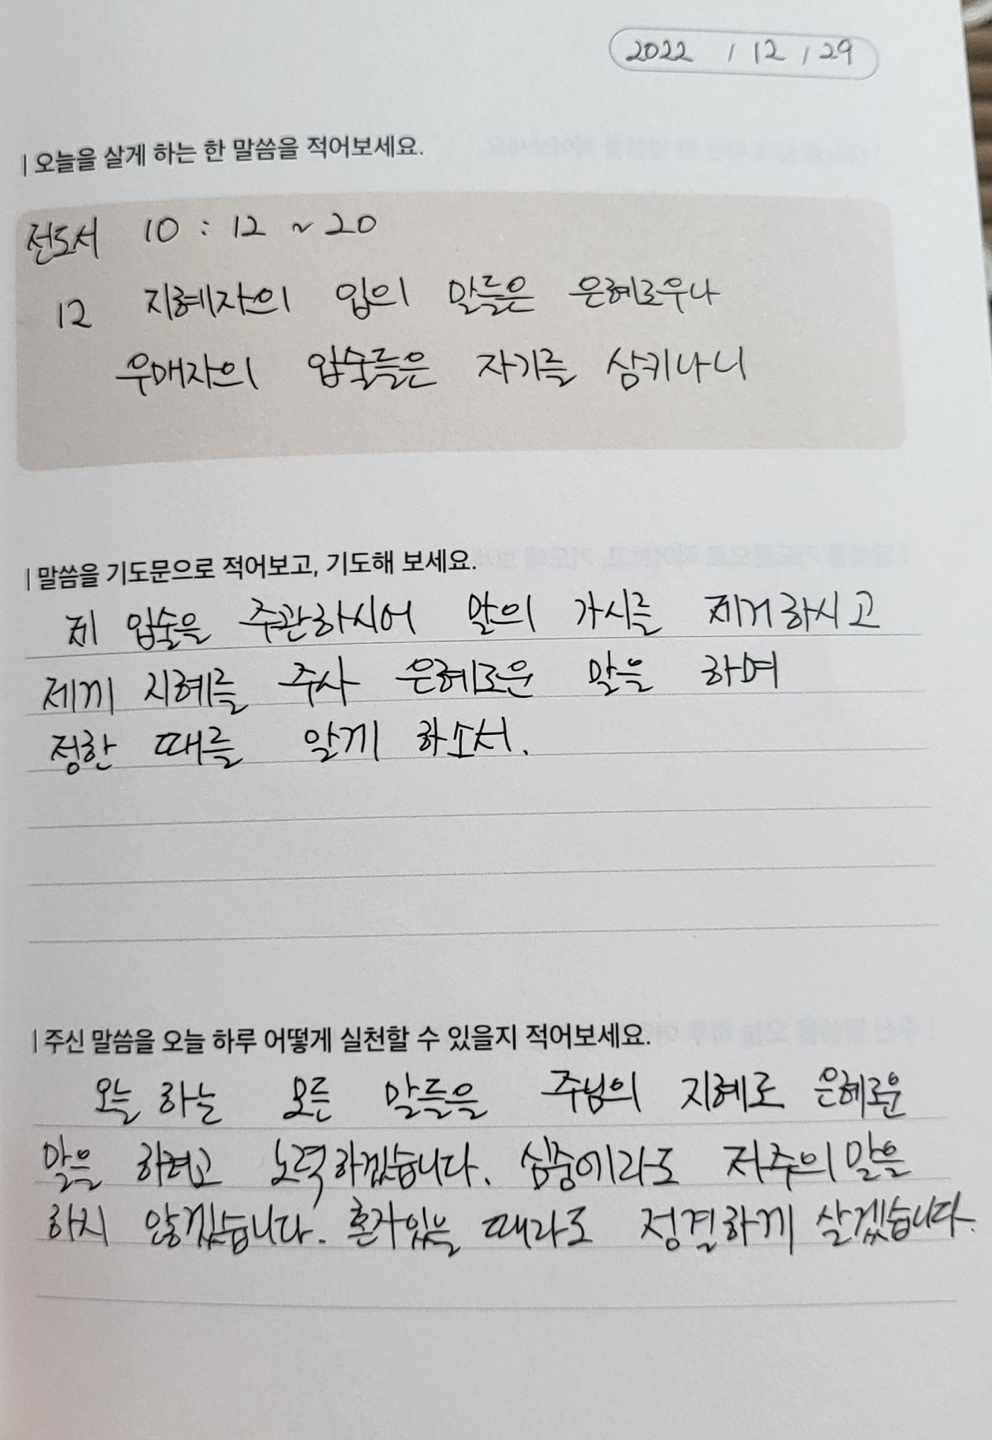 2022 / 12 / 29
| 오늘을 살게 하는 한 말씀을 적어보세요.
전도서 10 : 12 ~ 20
12 지혜자의 입의 말들은 은혜로우나
우매자의 입술들은 자기를 삼키나니
| 말씀을 기도문으로 적어보고, 기도해 보세요.
제 입술을 주관하시어 말의 가시를 제거하시고
제게 지혜를 주사 은혜로운 말을 하며
정한 때를 알게 하소서.
| 주신 말씀을 오늘 하루 어떻게 실천할 수 있을지 적어보세요.
오늘 하는 모든 말들을 주님의 지혜로 은혜로운
말을 하려고 노력하겠습니다. 심중에라도 저주의 말을
하지 않겠습니다. 혼자있을 때라도 정결하게 살겠습니다.